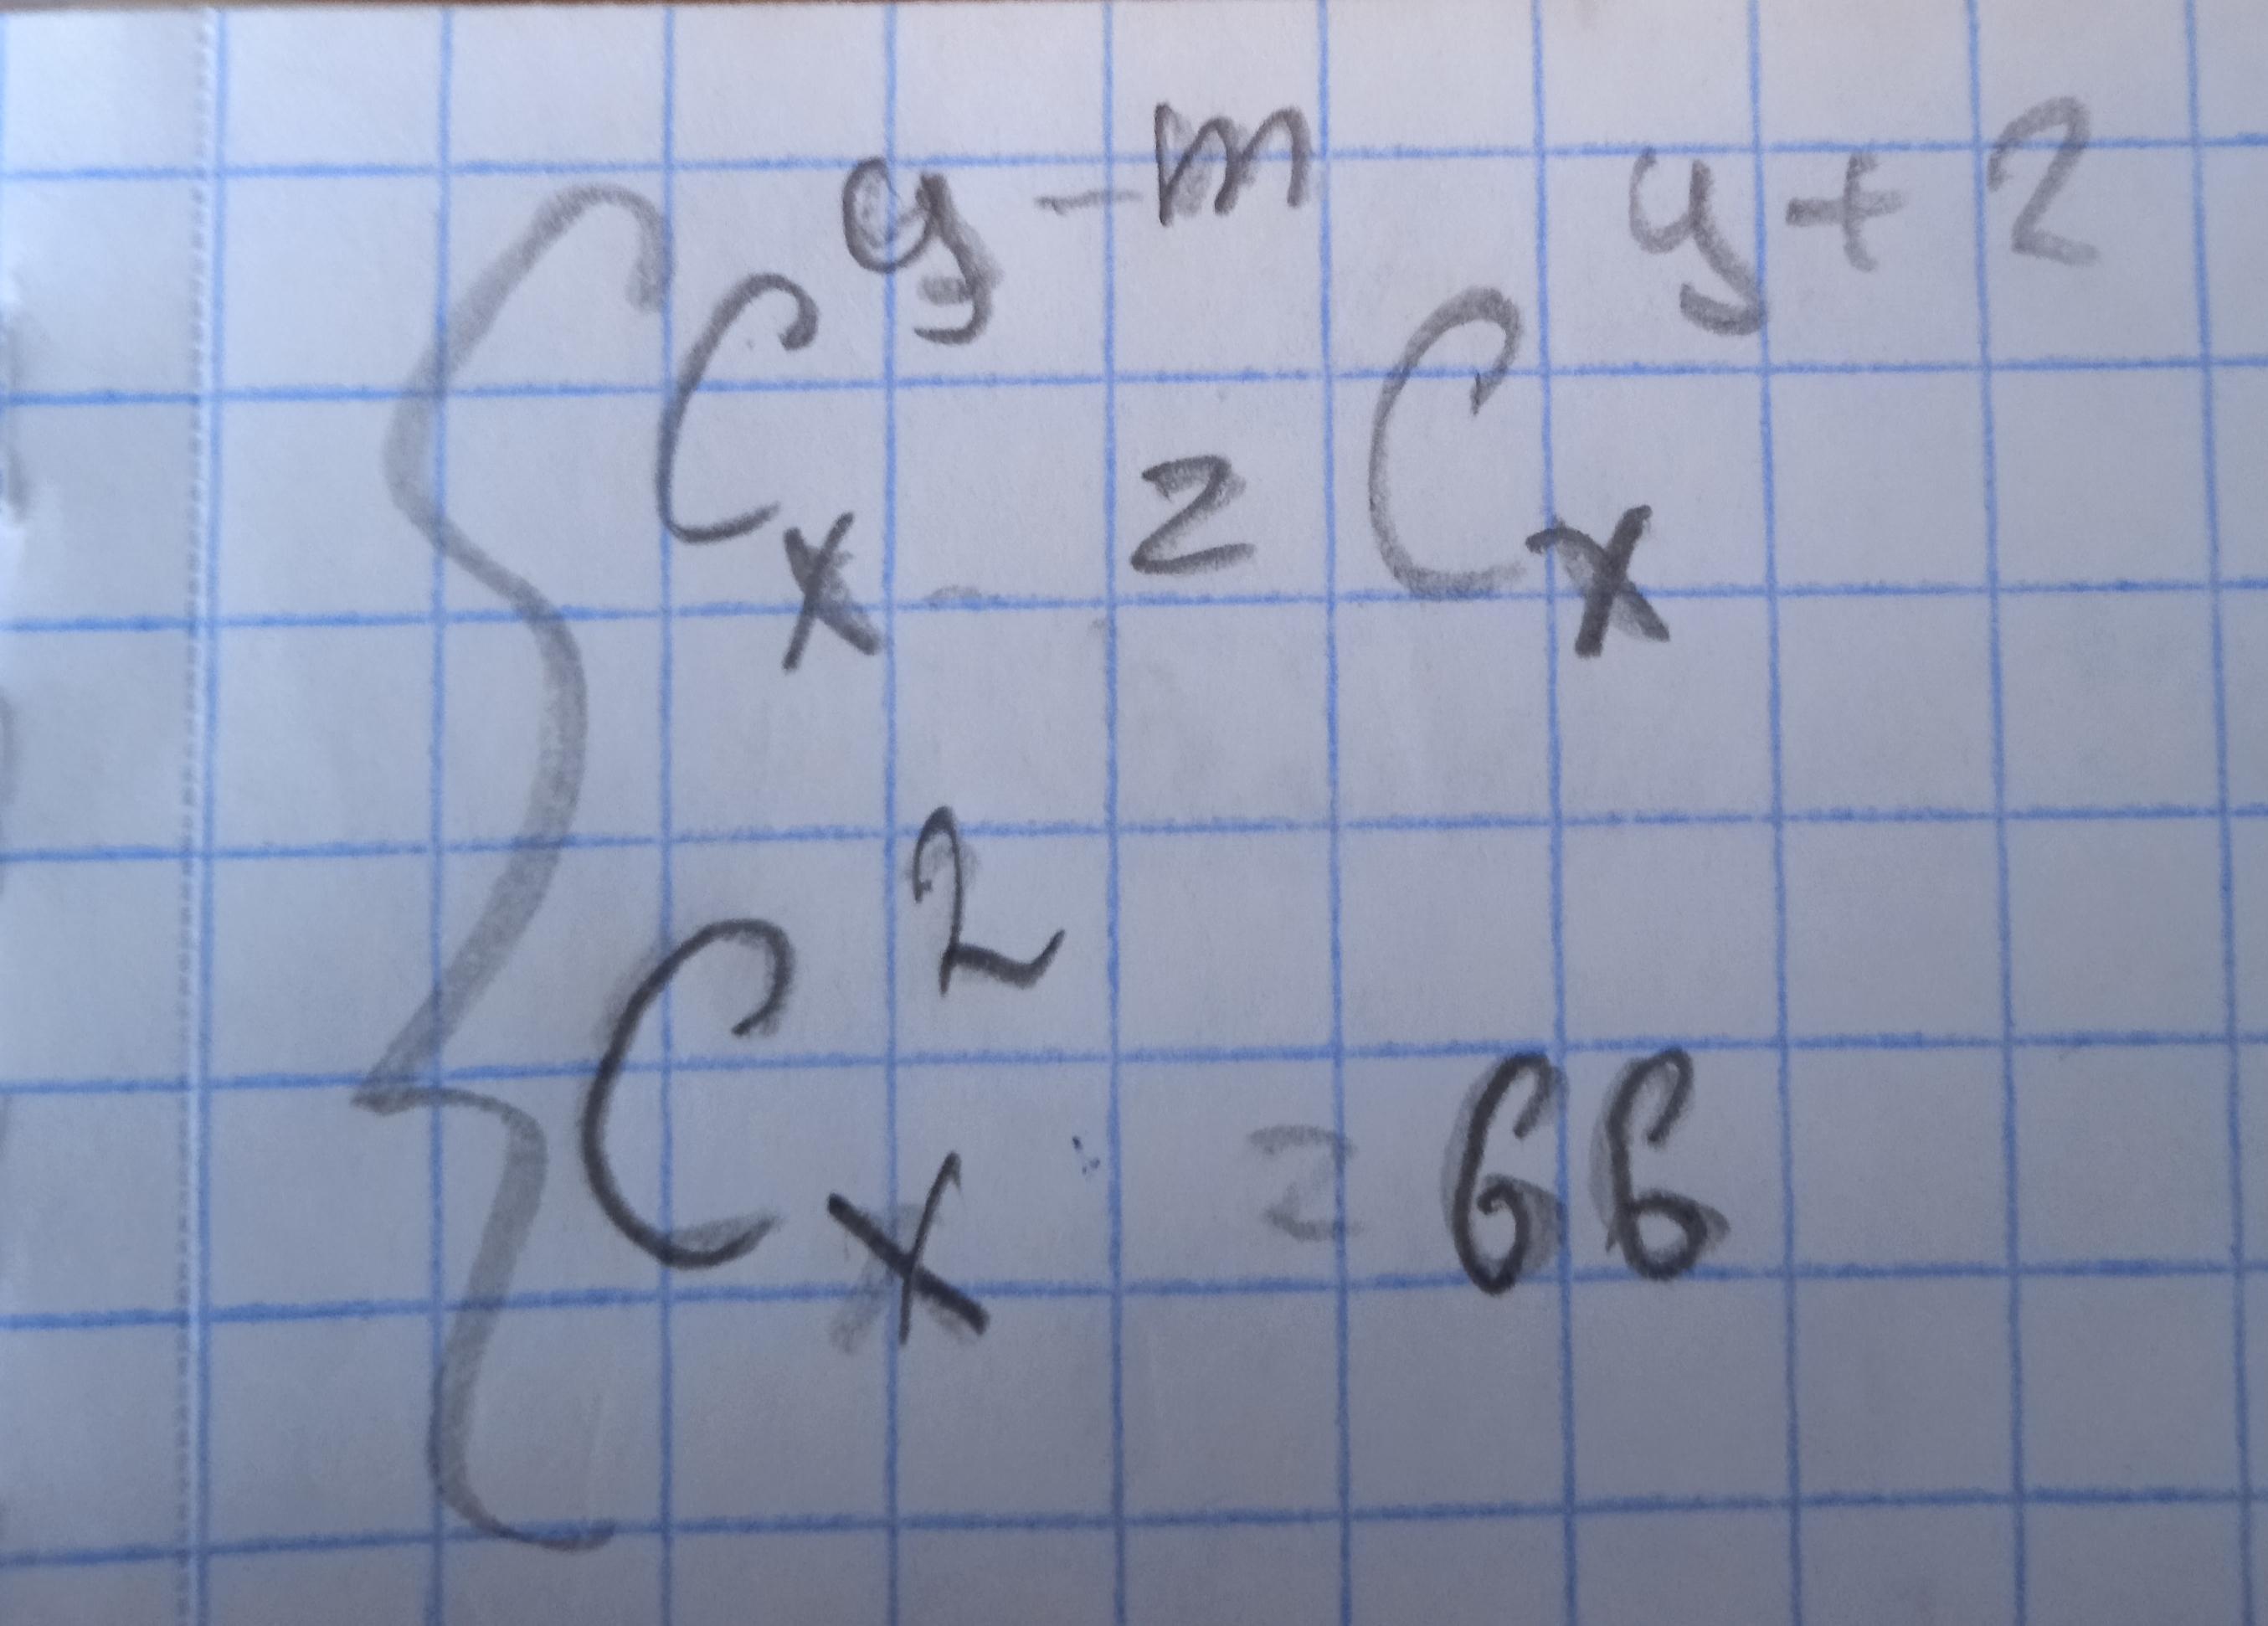 { C_x^{y-m} = C_x^{y+2}
C_x^2 = 66